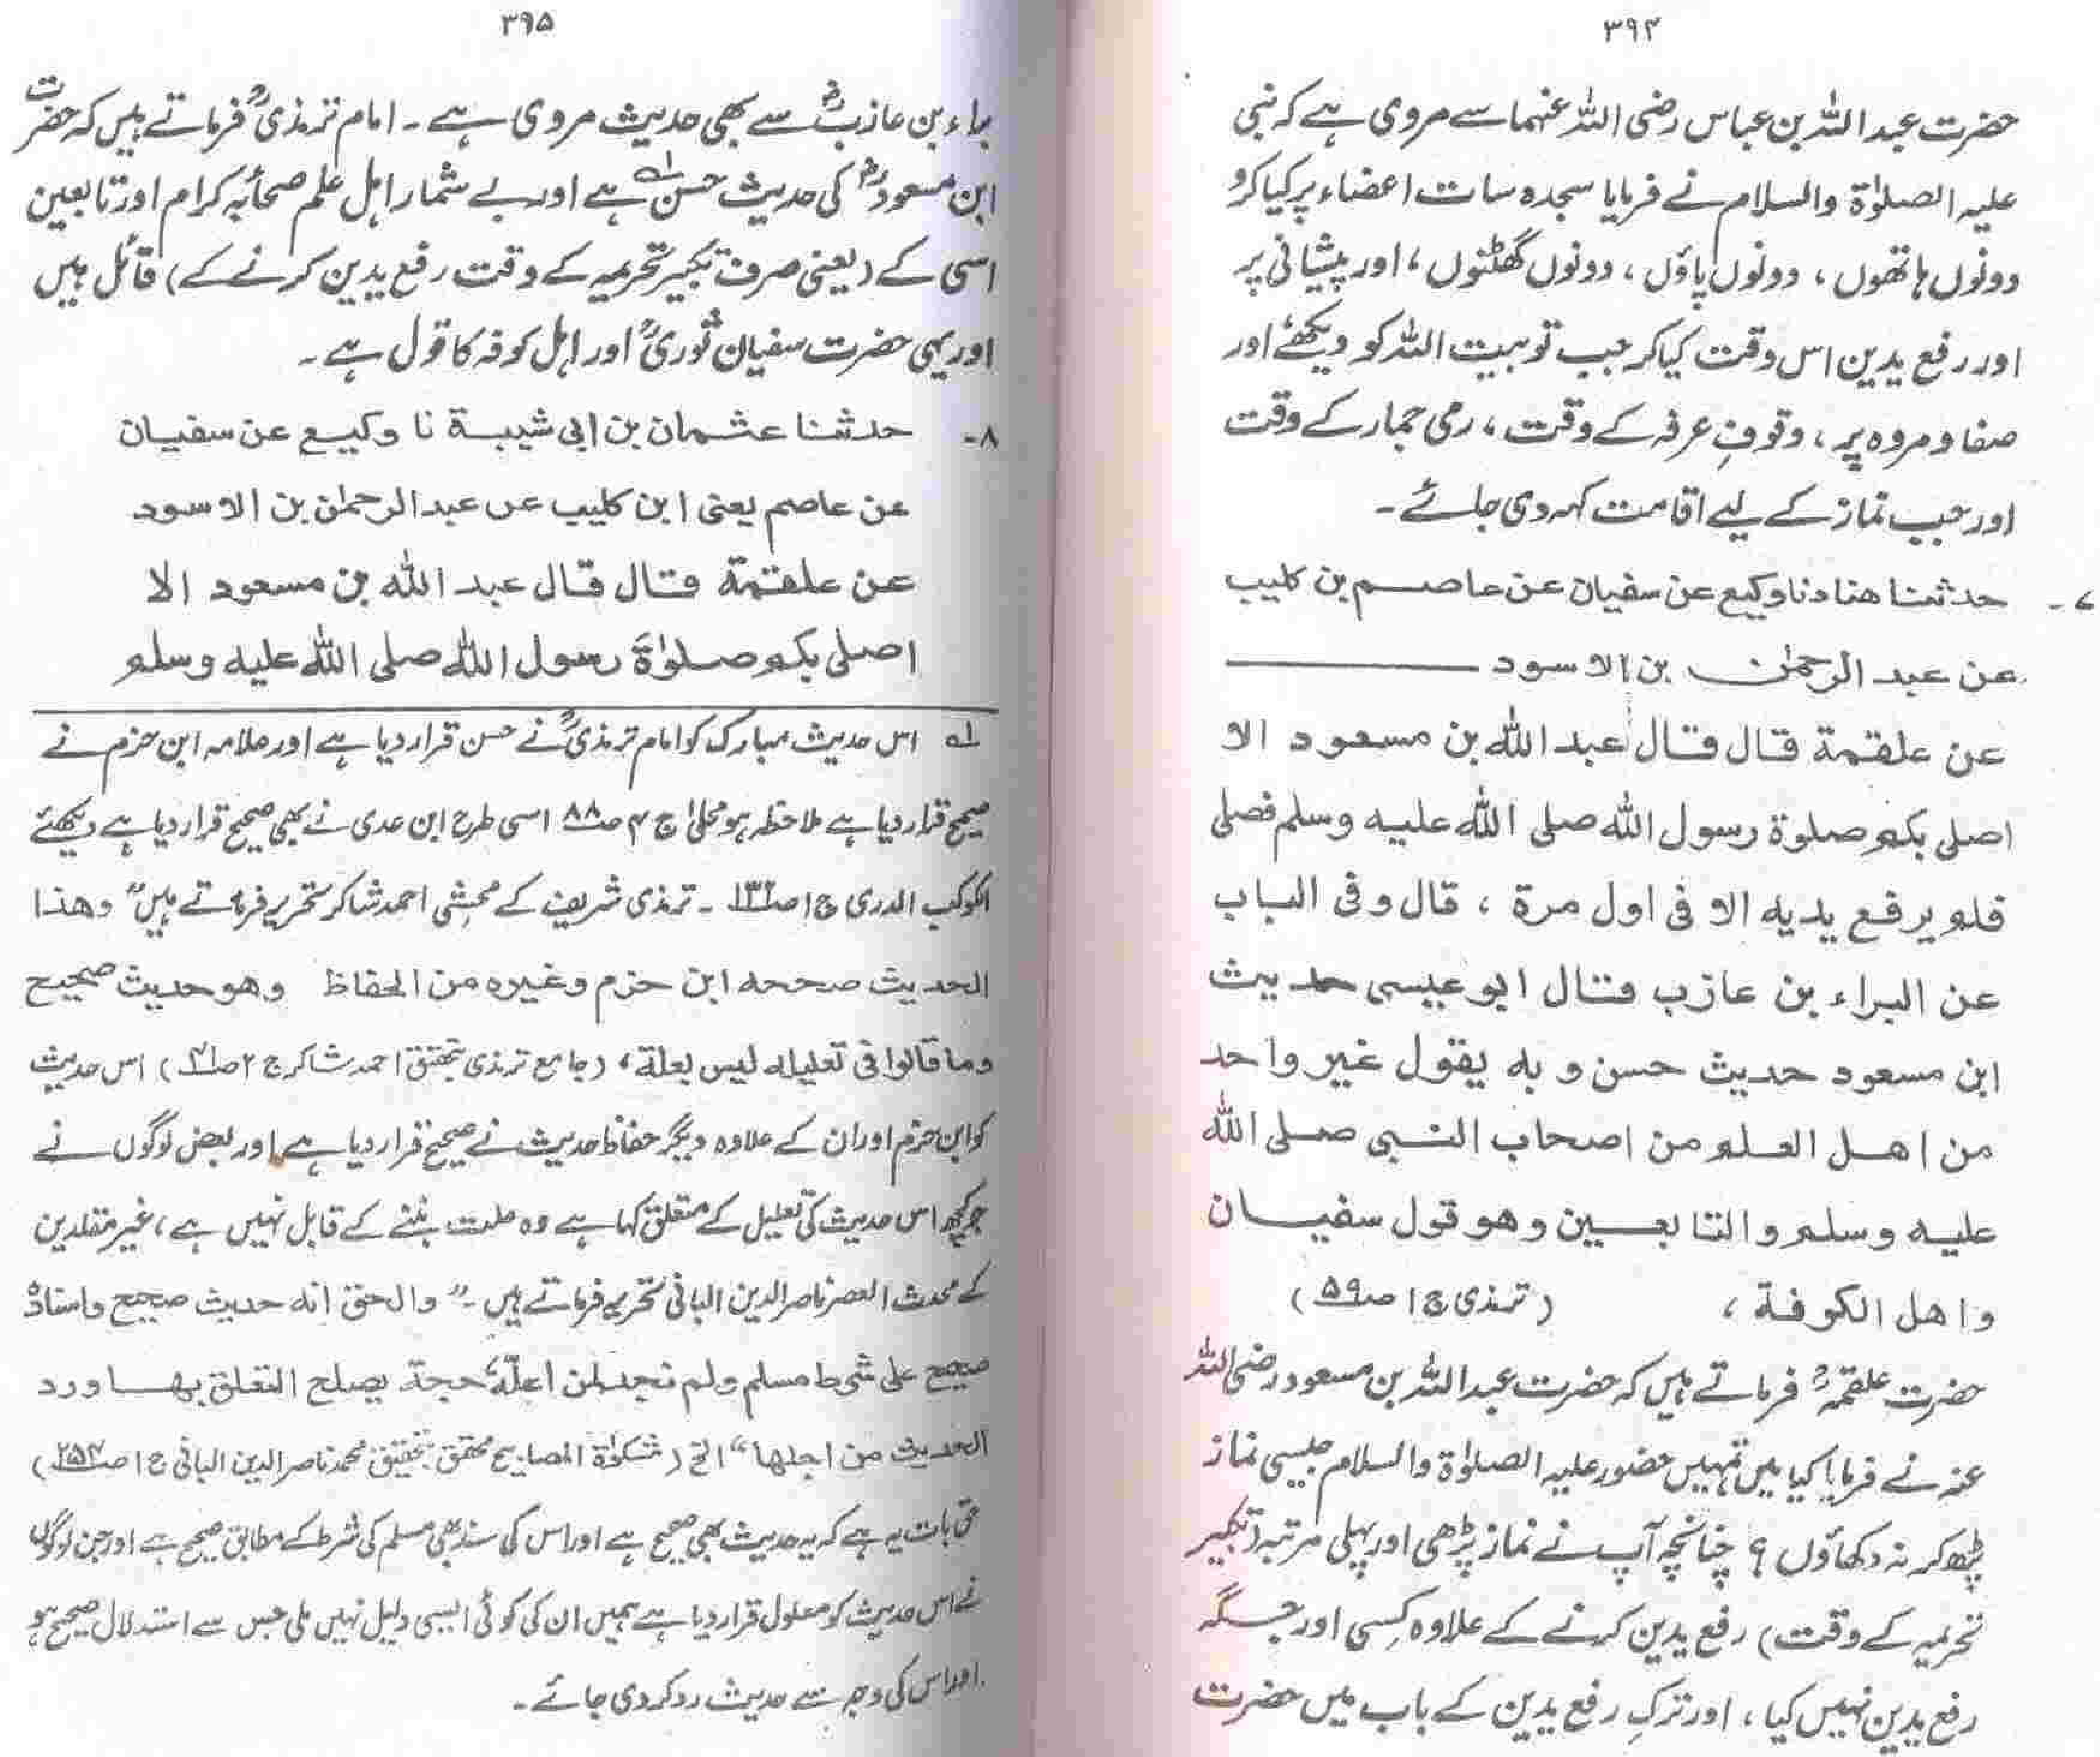 ۳۹۴
حضرت عبداللہ بن عباس رضی اللہ عنہما سے مروی ہے کہ نبی
علیہ الصلوٰۃ والسلام نے فرمایا سجدہ سات اعضاء پر کیا کرو
دونوں ہاتھوں ، دونوں پاؤں ، دونوں گھٹنوں ، اور پیشانی پر
اور رفع یدین اس وقت کیا کر جب تو بیت اللہ کو دیکھے اور
صفا و مروہ پر ، وقوفِ عرفہ کے وقت ، رمی جمار کے وقت
اور جب نماز کے لیے اقامت کہہ دی جائے ۔
۷ - حدثنا هناد نا وكيع عن سفيان عن عاصم بن كليب
عن عبد الرحمٰن بن الاسود
عن علقمة قال قال عبد الله بن مسعود الا
اصلى بكم صلوة رسول الله صلى الله عليه وسلم فصلى
فلم يرفع يديه الا فى اول مرة ، قال وفى الباب
عن البراء بن عازب قال ابو عيسى حديث
ابن مسعود حديث حسن و به يقول غير واحد
من اهل العلم من اصحاب النبى صلى الله
عليه وسلم والتابعين وهو قول سفيان
واهل الكوفة ، (ترمذی ج ۱ ص ۵۹)
حضرت علقمہؒ فرماتے ہیں کہ حضرت عبداللہ بن مسعود رضی اللہ
عنہ نے فرمایا کیا میں تمہیں حضور علیہ الصلوٰۃ والسلام جیسی نماز
پڑھ کر نہ دکھاؤں ؟ چنانچہ آپ نے نماز پڑھی اور پہلی مرتبہ (تکبیر
تحریمہ کے وقت) رفع یدین کرنے کے علاوہ کسی اور جگہ
رفع یدین نہیں کیا ، اور ترکِ رفع یدین کے باب میں حضرت
۳۹۵
براء بن عازبؓ سے بھی حدیث مروی ہے ۔ امام ترمذیؒ فرماتے ہیں کہ حضرت
ابن مسعودؓ کی حدیث حسن ہے اور بے شمار اہل علم صحابۂ کرام اور تابعین
اسی کے (یعنی صرف تکبیر تحریمہ کے وقت رفع یدین کرنے کے) قائل ہیں
اور یہی حضرت سفیان ثوریؒ اور اہل کوفہ کا قول ہے ۔
۸ - حدثنا عثمان بن ابى شيبة نا وكيع عن سفيان
عن عاصم يعنى ابن كليب عن عبد الرحمٰن بن الاسود
عن علقمة قال قال عبد الله بن مسعود الا
اصلى بكم صلوٰة رسول الله صلى الله عليه وسلم
لہ اس حدیث مبارک کو امام ترمذیؒ نے حسن قرار دیا ہے اور علامہ ابن حزم نے
صحیح قرار دیا ہے ملاحظہ ہو محلیٰ ج ۴ ص ۸۸ اسی طرح ابن عدی نے بھی صحیح قرار دیا ہے دیکھئے
الکوکب الدری ج ۱ ص ۱۳۲ ۔ ترمذی شریف کے محشی احمد شاکر تحریر فرماتے ہیں " وهذا
الحديث صححه ابن حزم وغيره من الحفاظ وهو حديث صحيح
وما قالوا فى تعليله ليس بعلة ، (جامع ترمذی بتحقیق احمد شاکر ج ۲ ص ۴۱) اس حدیث
کو ابن حزم اور ان کے علاوہ دیگر حفاظ حدیث نے صحیح قرار دیا ہے اور بعض لوگوں نے
جو کچھ اس حدیث کی تعلیل کے متعلق کہا ہے وہ علت بننے کے قابل نہیں ہے ، غیر مقلدین
کے محدث العصر ناصر الدین البانی تحریر فرماتے ہیں ۔ " والحق انه حديث صحيح واسناده
صحيح على شرط مسلم ولم نجد لمن اعلّه حجة يصلح التعلق بها ورد
الحديث من اجلها" الخ (مشکوٰۃ المصابیح محقق بتحقیق محمد ناصر الدین البانی ج ۱ ص ۲۵۴)
حق بات یہ ہے کہ یہ حدیث بھی صحیح ہے اور اس کی سند بھی مسلم کی شرط کے مطابق صحیح ہے اور جن لوگوں
نے اس حدیث کو معلول قرار دیا ہے ہمیں ان کی کوئی ایسی دلیل نہیں ملی جس سے استدلال صحیح ہو
اور اس کی وجہ سے حدیث رد کر دی جائے ۔